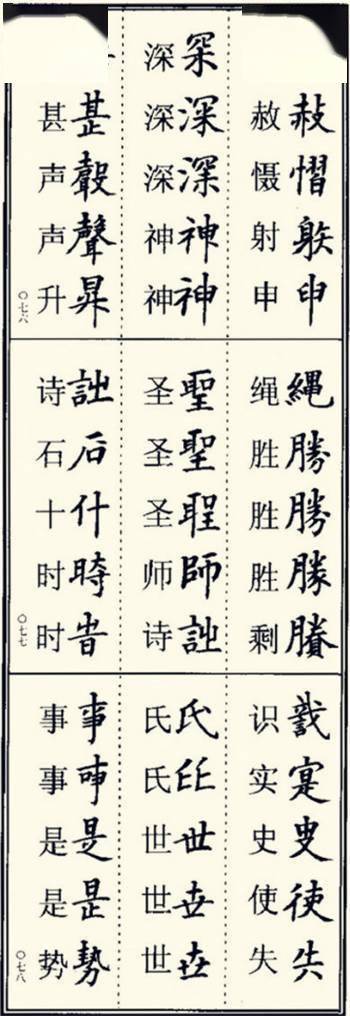 赦慴躲申
赦慑射申
罙深深神神
深深深神神
甚聲昇
甚声声升
〇七六
繩勝勝勝賸
绳胜胜胜剩
聖聖聖師詍
圣圣圣师诗
詍石什時旹
诗石十时时
〇七七
識寔叓使失
识实史使失
氏氏世世世
氏氏世世世
事事是是勢
事事是是势
〇七八